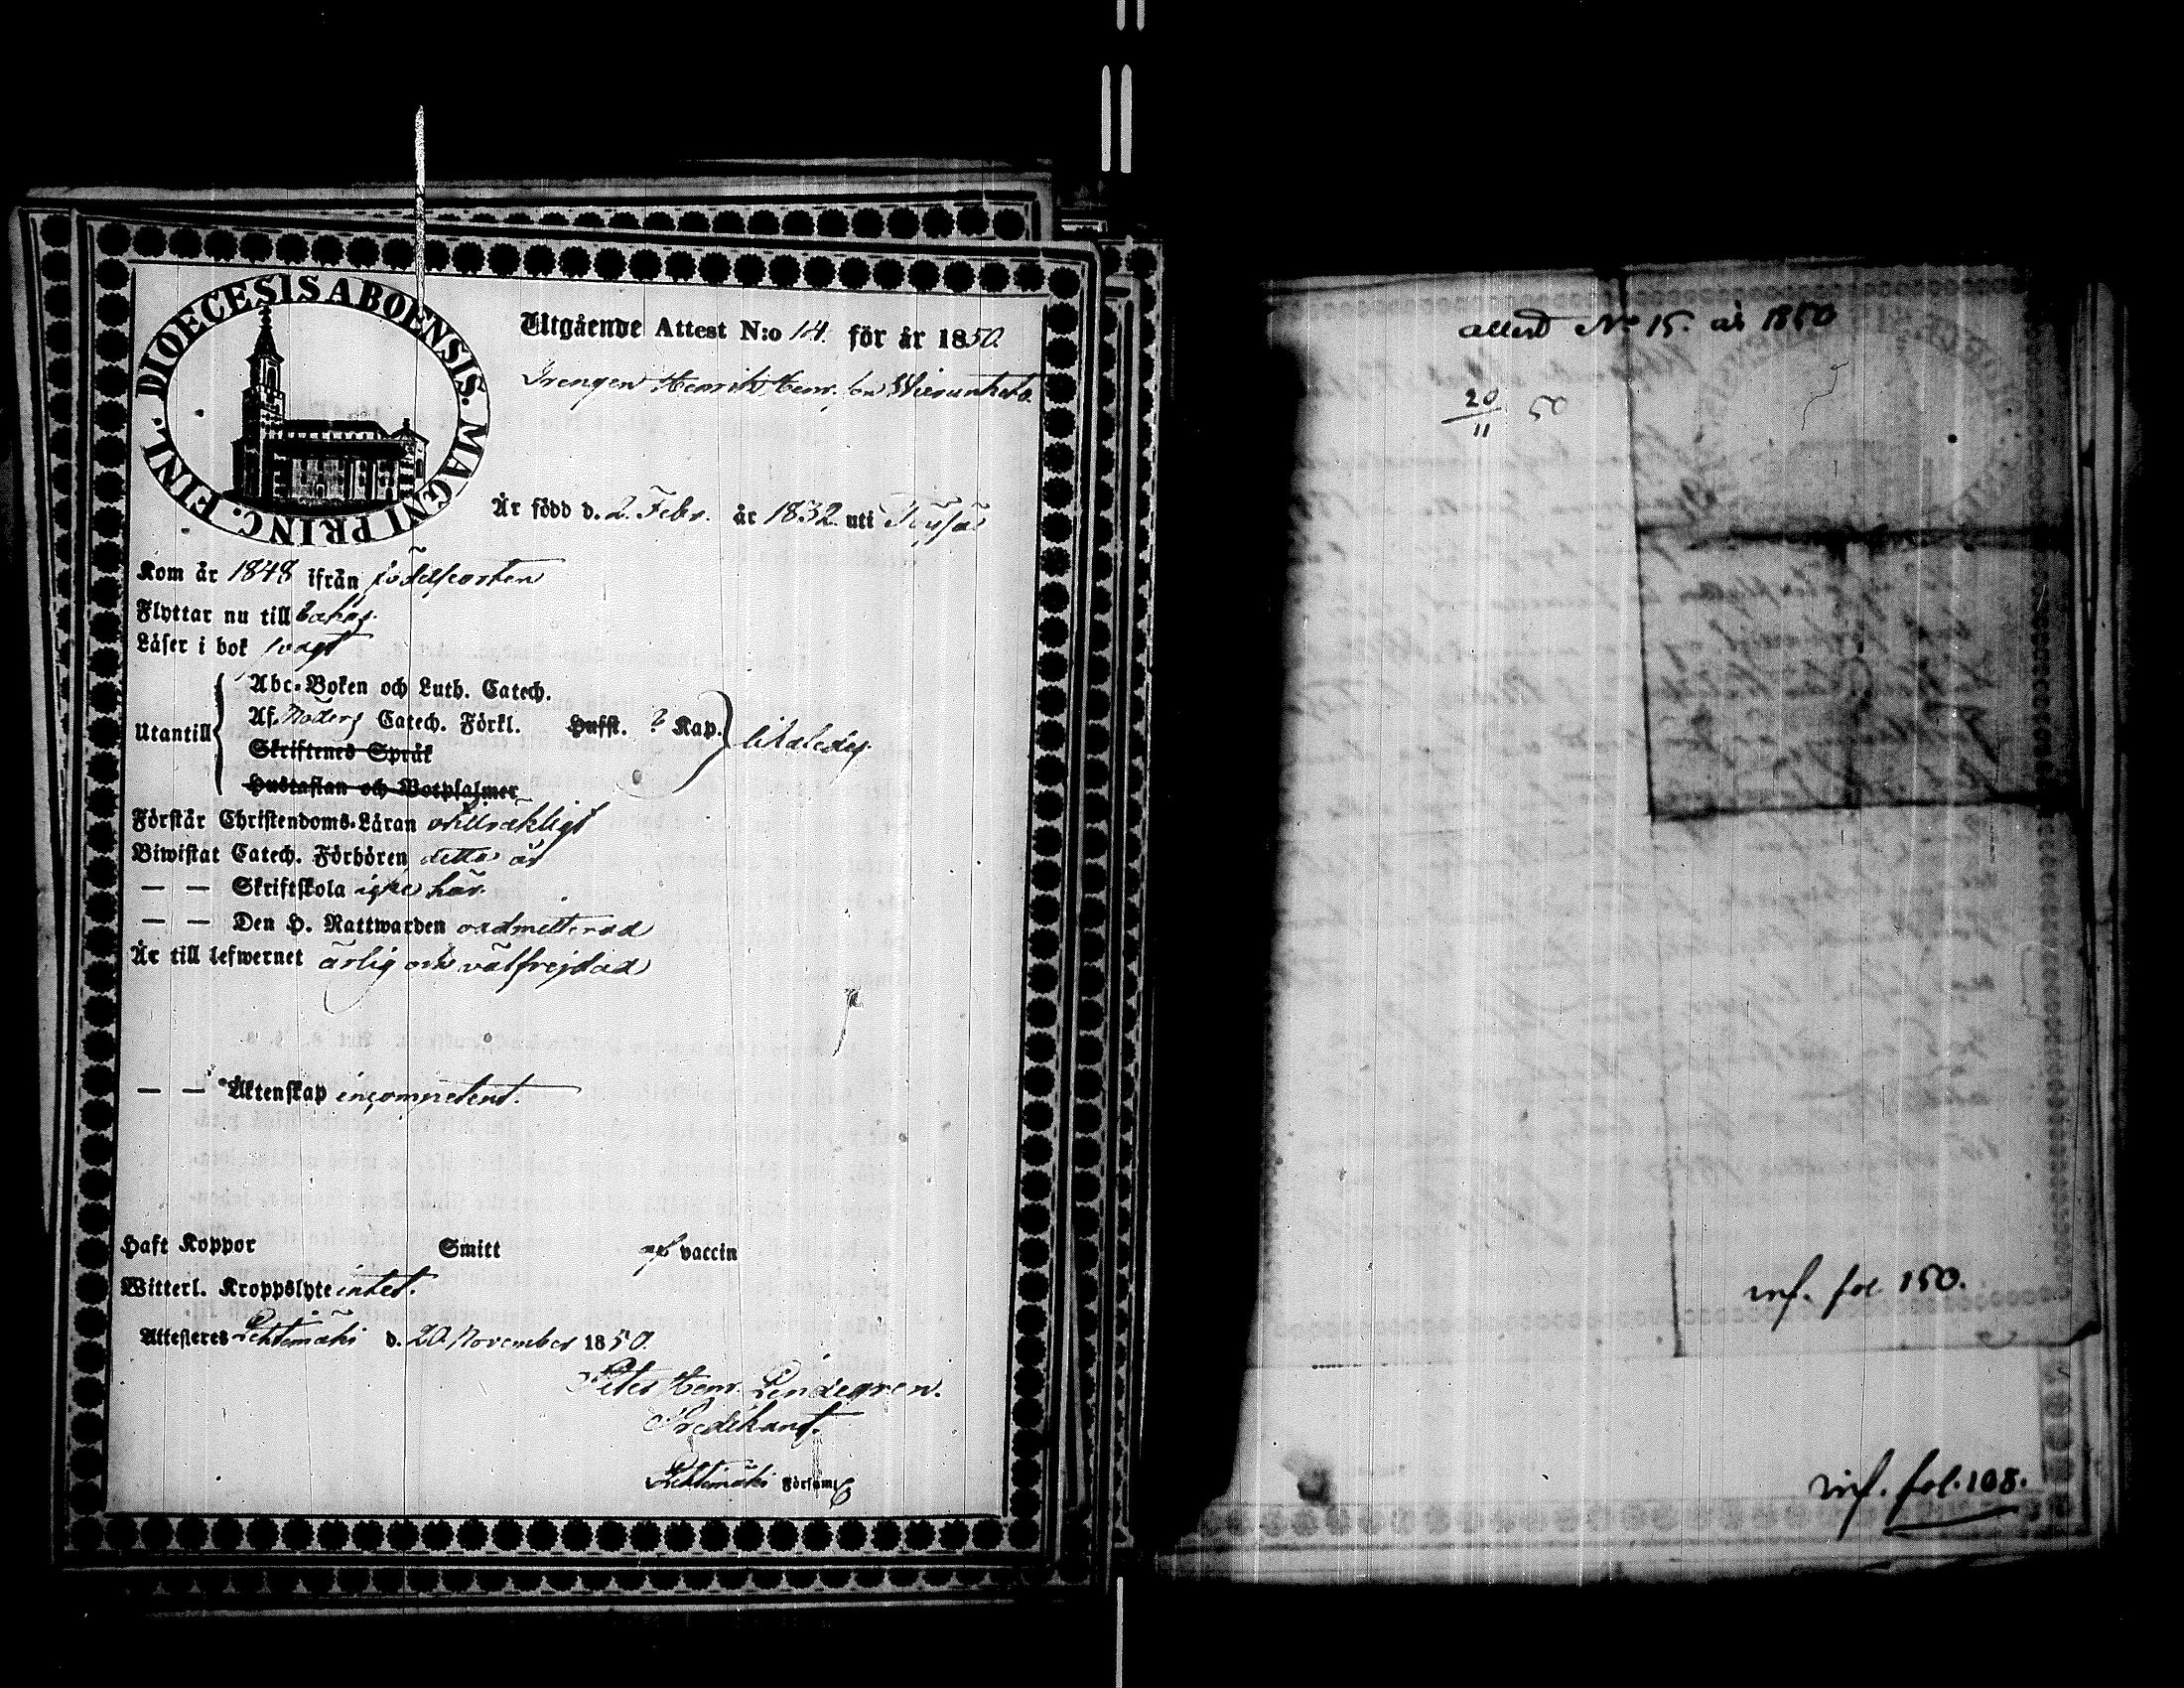 DIOECESIS ABOENSIS. MAGNI PRINC. FINL.
Utgående Attest N:o 14. för år 1850.
Drengen Henrik Henr. son
Är född d. 2. Febr. år 1832 uti
Kom år 1848 ifrån födelseorten
Flyttar nu till bakas.
Läser i bok svagt
Utantill
Abc-Boken och Luth. Catech.
Af Catech. Förkl. Husst. ? Kap.
Skriftenes Språk
Hustaflan och Botpsalmer
likaledes.
Förstår Christendoms-Läran otillräckligt
Biwistat Catech. Förhören detta år
— — Skriftskola icke här.
— — Den H. Nattwarden oadmitterad
Är till lefwernet ärlig och välfrejdad
— — Äktenskap incompetent.
Haft Koppor Smitt af vaccin
Witterl. Kroppslyte intet.
Attesteras Lehtimäki d. 20 November 1850.
Peter Henr. Lindegren.
Predikant.
Lehtimäki Församl
attest No 15. år 1850
20/11 50
inf. fol 150.
inf. fol. 108.